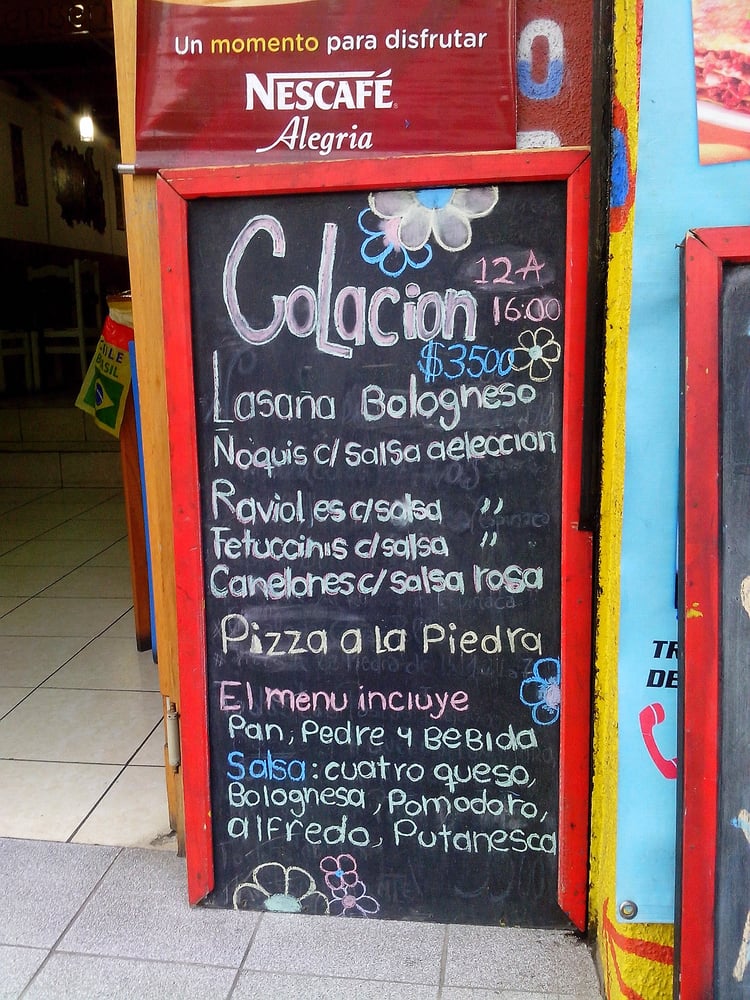 Un momento para disfrutar
NESCAFÉ
Alegria
CoLacion
12 A
16:00
$3500
Lasaña Bologneso
Ñoquis c/salsa aeleccion
Ravioles c/salsa "
Fetuccinis c/salsa "
Canelones c/salsa rosa
Pizza a la Piedra
El menu incluye
Pan, Pedre y BeBida
Salsa: cuatro queso,
Bolognesa, Pomodoro,
alfredo, Putanesca
CHILE
BRASIL
TR
DE